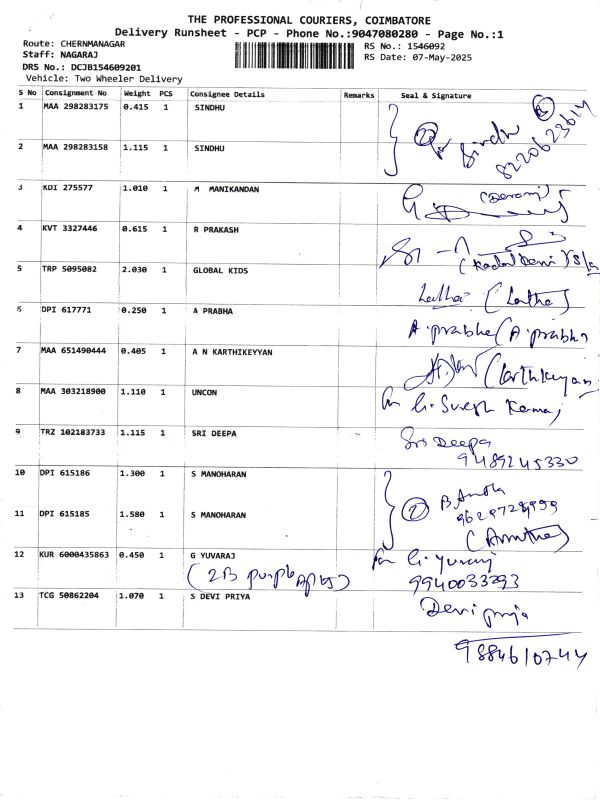 THE PROFESSIONAL COURIERS, COIMBATORE
Delivery Runsheet - PCP - Phone No.:9047080280 - Page No.:1
Route: CHERNMANAGAR
RS No.: 1546092
Staff: NAGARAJ
RS Date: 07-May-2025
DRS No.: DCJB154609201
Vehicle: Two Wheeler Delivery
S No Consignment No Weight PCS Consignee Details Remarks Seal & Signature
1 MAA 298283175 0.415 1 SINDHU
2 MAA 298283158 1.115 1 SINDHU
② for Sindhu
8220623614
3 KDI 275577 1.010 1 M MANIKANDAN
4 KVT 3327446 0.615 1 R PRAKASH
5 TRP 5095082 2.030 1 GLOBAL KIDS
Latha (Latha)
6 DPI 617771 0.250 1 A PRABHA
A. prabha (A. prabha)
7 MAA 651490444 0.405 1 A N KARTHIKEYYAN
(Karthikeyan)
8 MAA 303218900 1.110 1 UNCON
for G. Suresh Kumar
9 TRZ 102183733 1.115 1 SRI DEEPA
Sri Deepa
9489245330
10 DPI 615186 1.300 1 S MANOHARAN
11 DPI 615185 1.580 1 S MANOHARAN
②
12 KUR 6000435863 0.450 1 G YUVARAJ
for G. Yuvaraj
(2B purple Apts)
9940033393
13 TCG 50862204 1.070 1 S DEVI PRIYA
Devi priya
9884610744